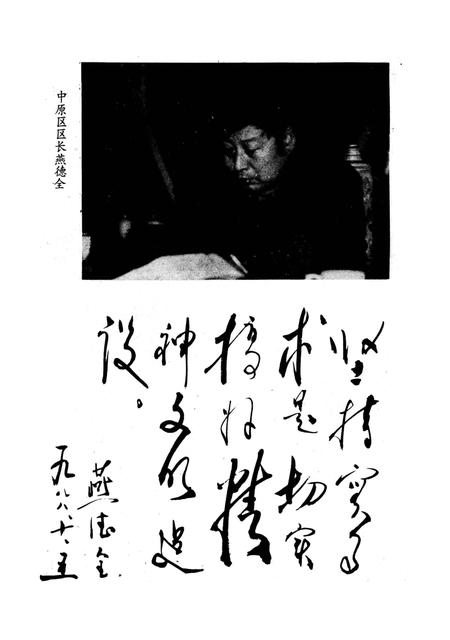 中原区区长燕德全
坚持实事
求是，切实
搞好精
神文明建
设。
燕德全
一九八八、十、五